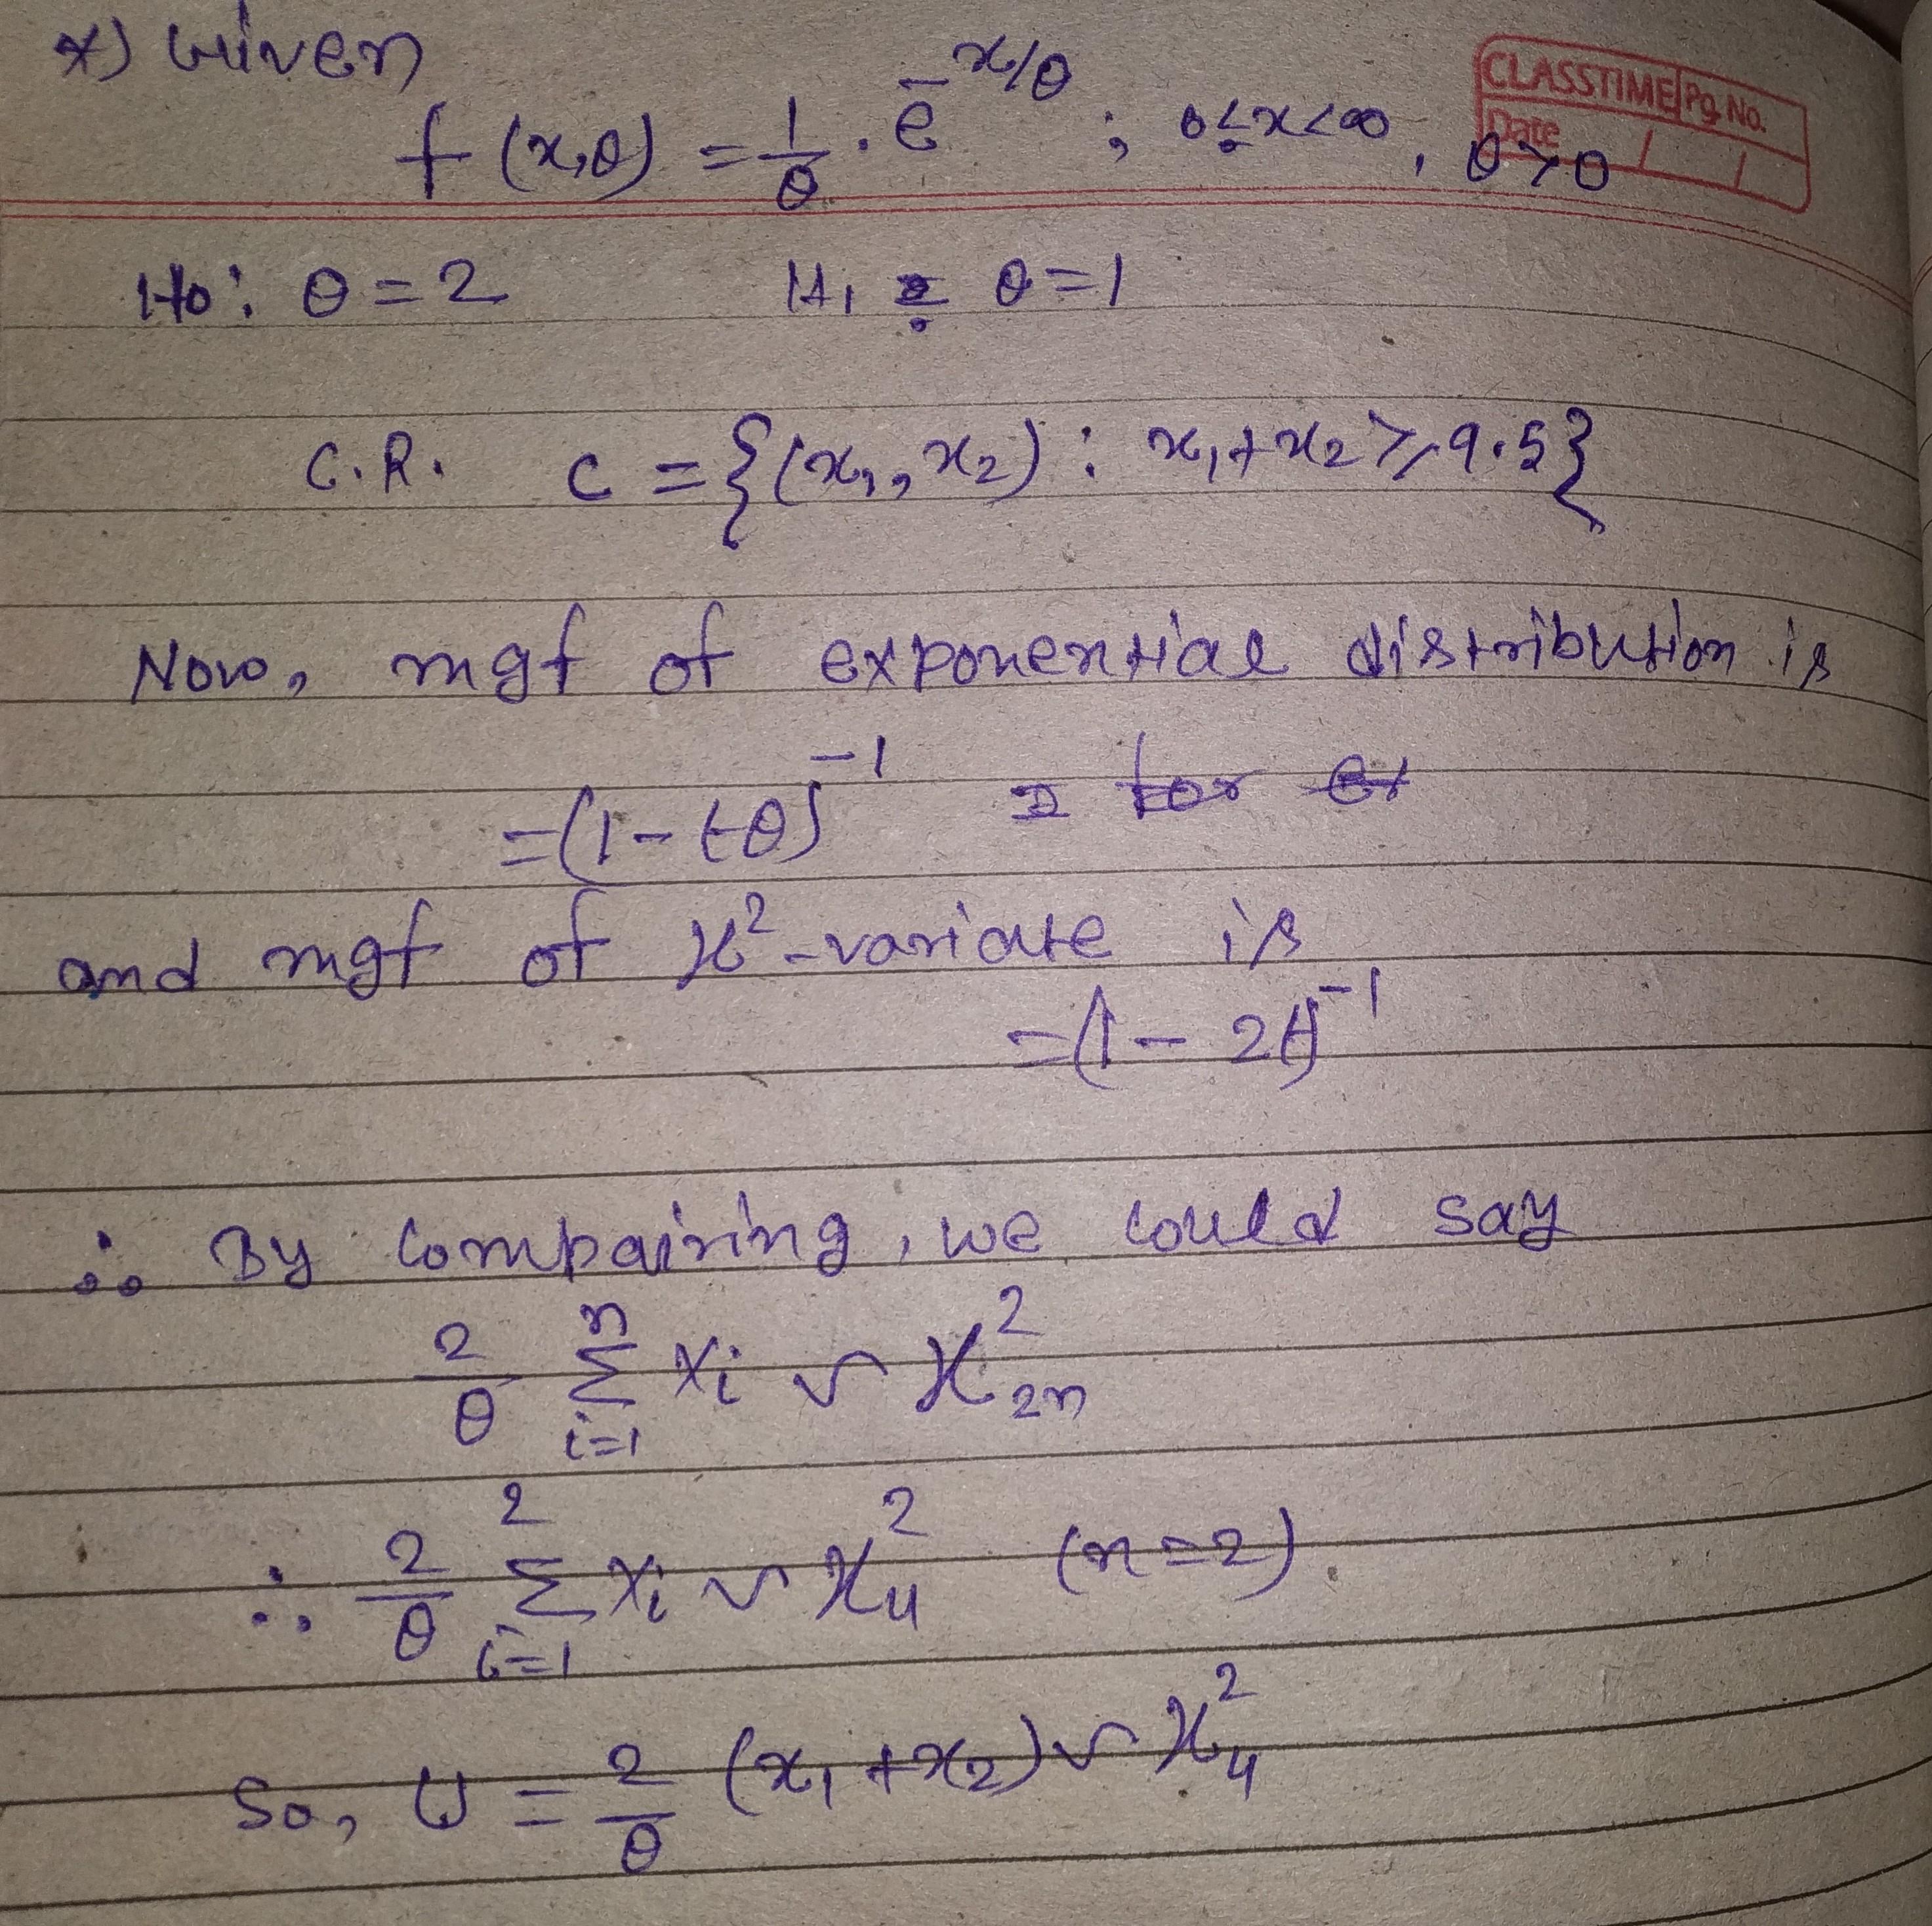 *) Given
CLASSTIME Pg. No.
Date / /
f(x,θ) = 1/θ . e^{-x/θ} ; 0≤x<∞, θ>0
Ho: θ = 2 H₁: θ = 1
C.R. C = {(x₁, x₂) : x₁+x₂ ≥ 9.5}
Now, mgf of exponential distribution is
= (1 - tθ)⁻¹ for
and mgf of χ²-variate is
= (1 - 2t)⁻¹
∴ By compairing, we could say
2/θ Σ_{i=1}^{n} Xi ~ χ²_{2n}
∴ 2/θ Σ_{i=1}^{2} Xi ~ χ²_4 (n=2).
So, U = 2/θ (x₁+x₂) ~ χ²_4